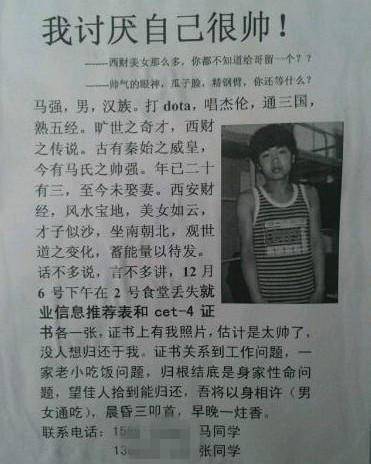 我讨厌自己很帅！
——西财美女那么多，你都不知道给哥留一个？？
——帅气的眼神，瓜子脸，精钢臂，你还等什么？
马强，男，汉族。打 dota，唱杰伦，通三国，
熟五经。旷世之奇才，西财
之传说。古有秦始之威皇，
今有马氏之帅强。年已二十
有三，至今未娶妻。西安财
经，风水宝地，美女如云，
才子似沙，坐南朝北，观世
道之变化，蓄能量以待发。
话不多说，言不多讲，12 月
6 号下午在 2 号食堂丢失就
业信息推荐表和 cet-4 证
书各一张，证书上有我照片，估计是太帅了，
没人想归还于我。证书关系到工作问题，一
家老小吃饭问题，归根结底是身家性命问
题，望佳人拾到能归还，吾将以身相许（男
女通吃），晨昏三叩首，早晚一炷香。
联系电话：15 马同学
13 张同学